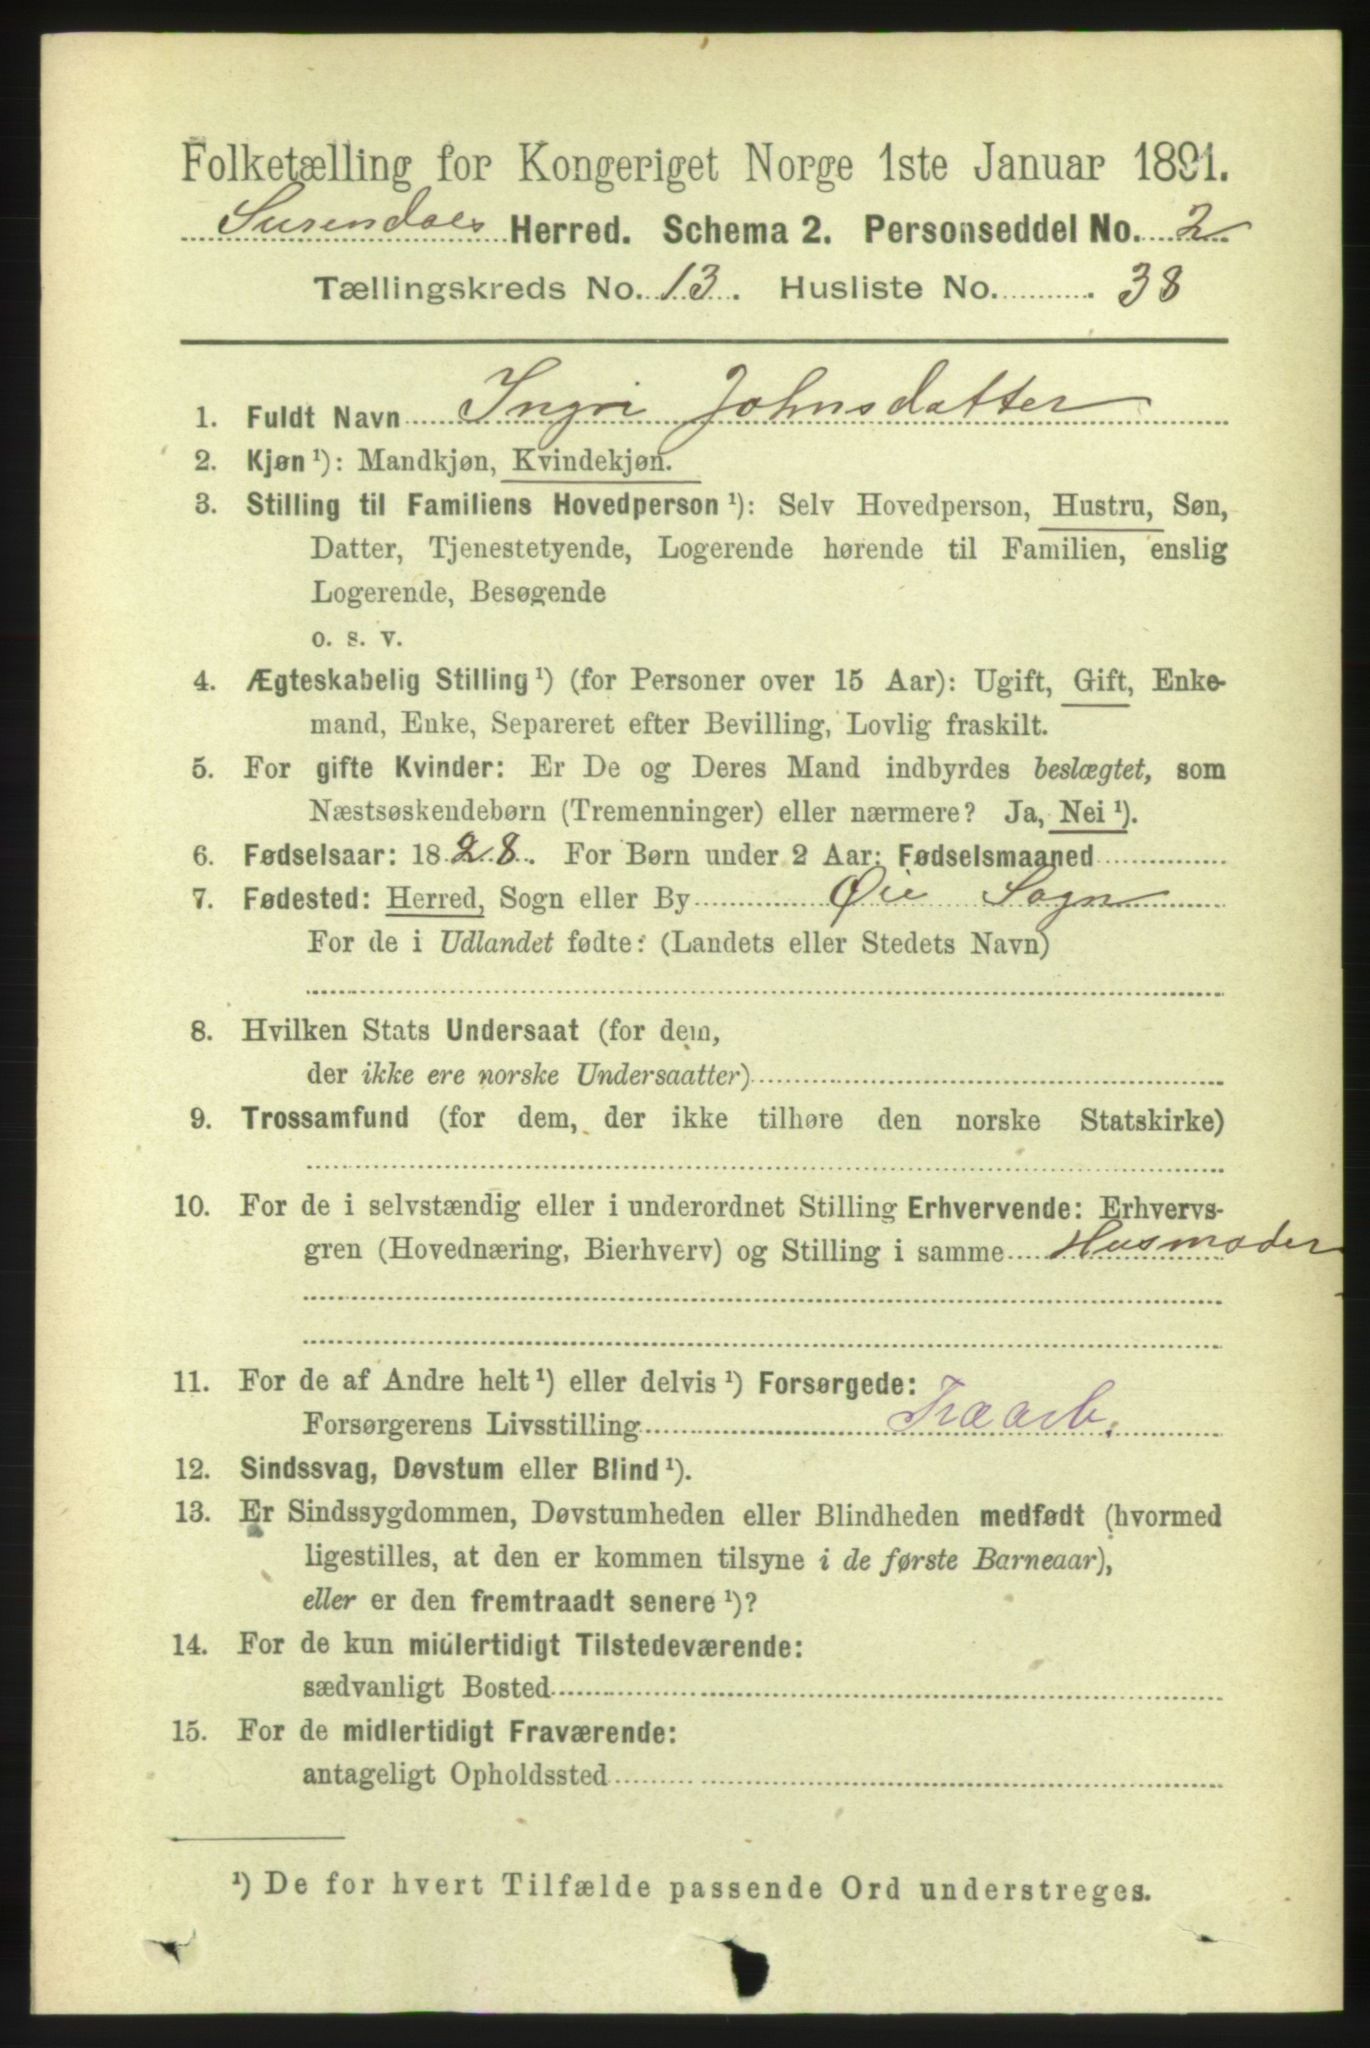 Folketælling for Kongeriget Norge 1ste Januar 1891.
Surendals Herred. Schema 2. Personseddel No. 2
Tællingskreds No. 13. Husliste No. 38
1. Fuldt Navn Ingri Johnsdatter
2. Kjøn ¹): Mandkjøn, Kvindekjøn.
3. Stilling til Familiens Hovedperson ¹): Selv Hovedperson, Hustru, Søn,
Datter, Tjenestetyende, Logerende hørende til Familien, enslig
Logerende, Besøgende
o. s. v.
4. Ægteskabelig Stilling ¹) (for Personer over 15 Aar): Ugift, Gift, Enke-
mand, Enke, Separeret efter Bevilling, Lovlig fraskilt.
5. For gifte Kvinder: Er De og Deres Mand indbyrdes beslægtet, som
Næstsøskendebørn (Tremenninger) eller nærmere? Ja, Nei ¹).
6. Fødselsaar: 1828. For Børn under 2 Aar: Fødselsmaaned
7. Fødested: Herred, Sogn eller By Øie Sogn
For de i Udlandet fødte: (Landets eller Stedets Navn)
8. Hvilken Stats Undersaat (for dem,
der ikke ere norske Undersaatter)
9. Trossamfund (for dem, der ikke tilhøre den norske Statskirke)
10. For de i selvstændig eller i underordnet Stilling Erhvervende: Erhvervs-
gren (Hovednæring, Bierhverv) og Stilling i samme Husmoder
11. For de af Andre helt ¹) eller delvis ¹) Forsørgede:
Forsørgerens Livsstilling Træarb.
12. Sindssvag, Døvstum eller Blind ¹).
13. Er Sindssygdommen, Døvstumheden eller Blindheden medfødt (hvormed
ligestilles, at den er kommen tilsyne i de første Barneaar),
eller er den fremtraadt senere ¹)?
14. For de kun midlertidigt Tilstedeværende:
sædvanligt Bosted
15. For de midlertidigt Fraværende:
antageligt Opholdssted
¹) De for hvert Tilfælde passende Ord understreges.